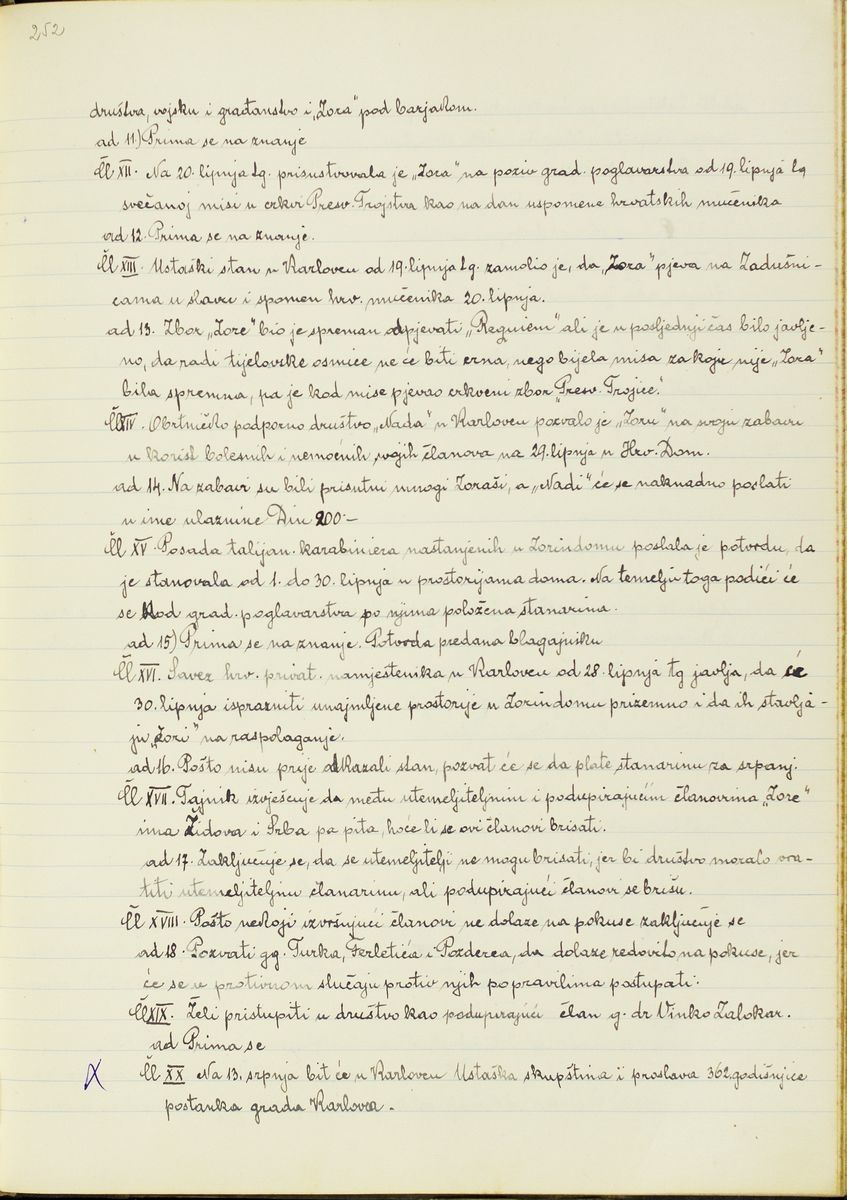 252
društva, vojsku i građanstvo i „Zora" pod barjakom.
ad 11.) Prima se na znanje
Čl XII. Na 20. lipnja t.g. prisustvovala je „Zora" na poziv grad. poglavarstva od 19. lipnja t.g
svečanoj misi u crkvi Presv. Trojstva kao na dan uspomene hrvatskih mučenika
ad 12. Prima se na znanje.
Čl XIII. Ustaški stan u Karlovcu od 19. lipnja t.g. zamolio je, da „Zora" pjeva na Zadušni-
cama u slavu i spomen hrv. mučenika 20. lipnja.
ad 13. Zbor „Zore" bio je spreman otpjevati „Requiem" ali je u posljednji čas bilo javlje-
no, da radi tijelovske osmice ne će biti crna, nego bijela misa za koju nije „Zora"
bila spremna, pa je kod mise pjevao crkveni zbor „Presv. Trojice".
Čl XIV. Obrtničko podporno društvo „Nada" u Karlovcu pozvalo je „Zoru" na svoju zabavu
u korist bolesnih i nemoćnih svojih članova na 29. lipnja u Hrv. Dom.
ad 14. Na zabavi su bili prisutni mnogi Zoraši, a „Nadi" će se naknadno poslati
u ime ulaznine Din 200.-
Čl XV. Posada talijan. karabiniera nastanjenih u Zorindomu poslala je potvrdu, da
je stanovala od 1. do 30. lipnja u prostorijama doma. Na temelju toga podići će
se kod grad. poglavarstva po njima položena stanarina.
ad 15) Prima se na znanje. Potvrda predana blagajniku
Čl XVI. Savez hrv. privat. namještenika u Karlovcu od 28. lipnja tg javlja, da će
30. lipnja isprazniti unajmljene prostorije u Zorindomu prizemno i da ih stavlja-
ju „Zori" na raspolaganje.
ad 16. Pošto nisu prije otkazali stan, pozvat će se da plate stanarinu za srpanj.
Čl XVII. Tajnik izvješćuje da među utemeljiteljnim i podupirajućim članovima „Zore"
ima Židova i Srba pa pita, hoće li se ovi članovi brisati.
ad 17. Zaključuje se, da se utemeljitelji ne mogu brisati, jer bi društvo moralo vra-
titi utemeljiteljnu članarinu, ali podupirajući članovi se brišu.
Čl XVIII. Pošto nekoji izvršujući članovi ne dolaze na pokuse zaključuje se
ad 18. Pozvati gg. Turka, Ferletića i Pozderca, da dolaze redovito na pokuse, jer
će se u protivnom slučaju protiv njih po pravilima postupati.
Čl XIX. Želi pristupiti u društvo kao podupirajući član g. dr Vinko Zalokar.
ad Prima se
X Čl XX Na 13. srpnja bit će u Karlovcu Ustaška skupština i proslava 362. godišnjice
postanka grada Karlovca.